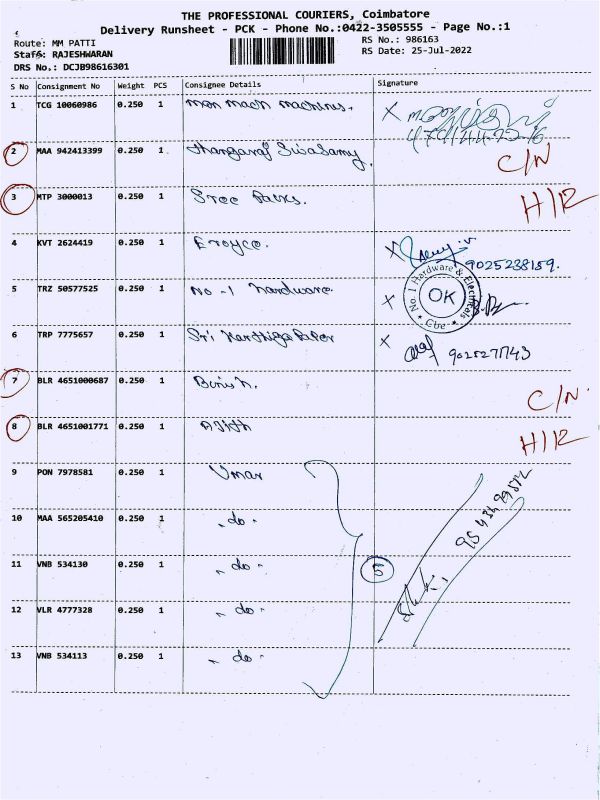 THE PROFESSIONAL COURIERS, Coimbatore
Delivery Runsheet - PCK - Phone No.:0422-3505555 - Page No.:1
Route: MM PATTI
RS No.: 986163
Staff: RAJESHWARAN
RS Date: 25-Jul-2022
DRS No.: DCJB98616301
S No Consignment No Weight PCS Consignee Details Signature
1 TCG 10060986 0.250 1 machines.
2 MAA 942413399 0.250 1 Thangaraj Sivasamy. C/N
3 MTP 3000013 0.250 1 Sree Packs. H/R
4 KVT 2624419 0.250 1 Eroyce. X 9025238159.
5 TRZ 50577525 0.250 1 No-1 hardware X No. 1 Hardware & Electricals OK Cbe
6 TRP 7775657 0.250 1 Sri Karthiga Paper X
7 BLR 4651000687 0.250 1 C/N.
8 BLR 4651001771 0.250 1 Ajith H/R
9 PON 7978581 0.250 1 Umar
10 MAA 565205410 0.250 1 - do -
11 VNB 534130 0.250 1 - do - 5
12 VLR 4777328 0.250 1 - do -
13 VNB 534113 0.250 1 - do -